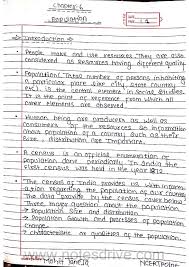 Chapter-6
POPULATION
Introduction :-
People make and use resources. They are also
considered as resources having different quality.
Population: Total number of persons inhabiting
a particular place (like city, state, country
etc). is the common element in Social Studies.
It is the point of reference from which all
other elements are observed.
Human being are producers as well as
consumers of the resources so information
about population of a country such as their
size, distribution are important.
A census is an official enumeration of
population done periodically. In India the
first census was held in the year 1872.
The Census of India provides us with inform
ation regarding the population of
The data provide by the census
under the three major question about the population
Population size and distribution
Population Growth and processes of population
change.
Characteristics or qualities of the population.